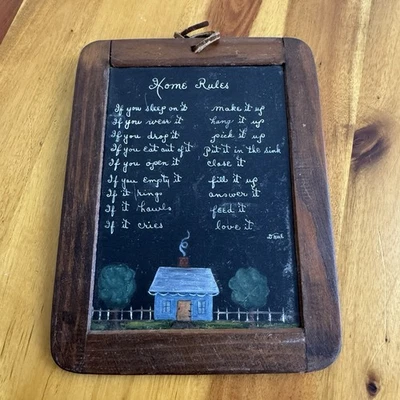 Home Rules
If you sleep on it make it up
If you wear it hang it up
If you drop it pick it up
If you eat out of it put it in the sink
If you open it close it
If you empty it fill it up
If it rings answer it
If it howls feed it
If it cries love it